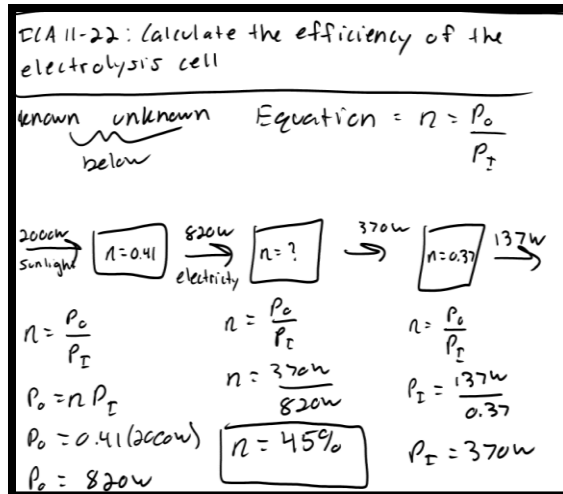 ICA 11-22: Calculate the efficiency of the
electrolysis cell
known unknown
below
Equation = n = Po / PI
2000W
sunlight
n=0.41
820W
electricty
n=?
370W
n=0.37
137W
n = Po / PI
Po = n PI
Po = 0.41(2000W)
Po = 820W
n = Po / PI
n = 370W / 820W
n = 45%
n = Po / PI
PI = 137W / 0.37
PI = 370W